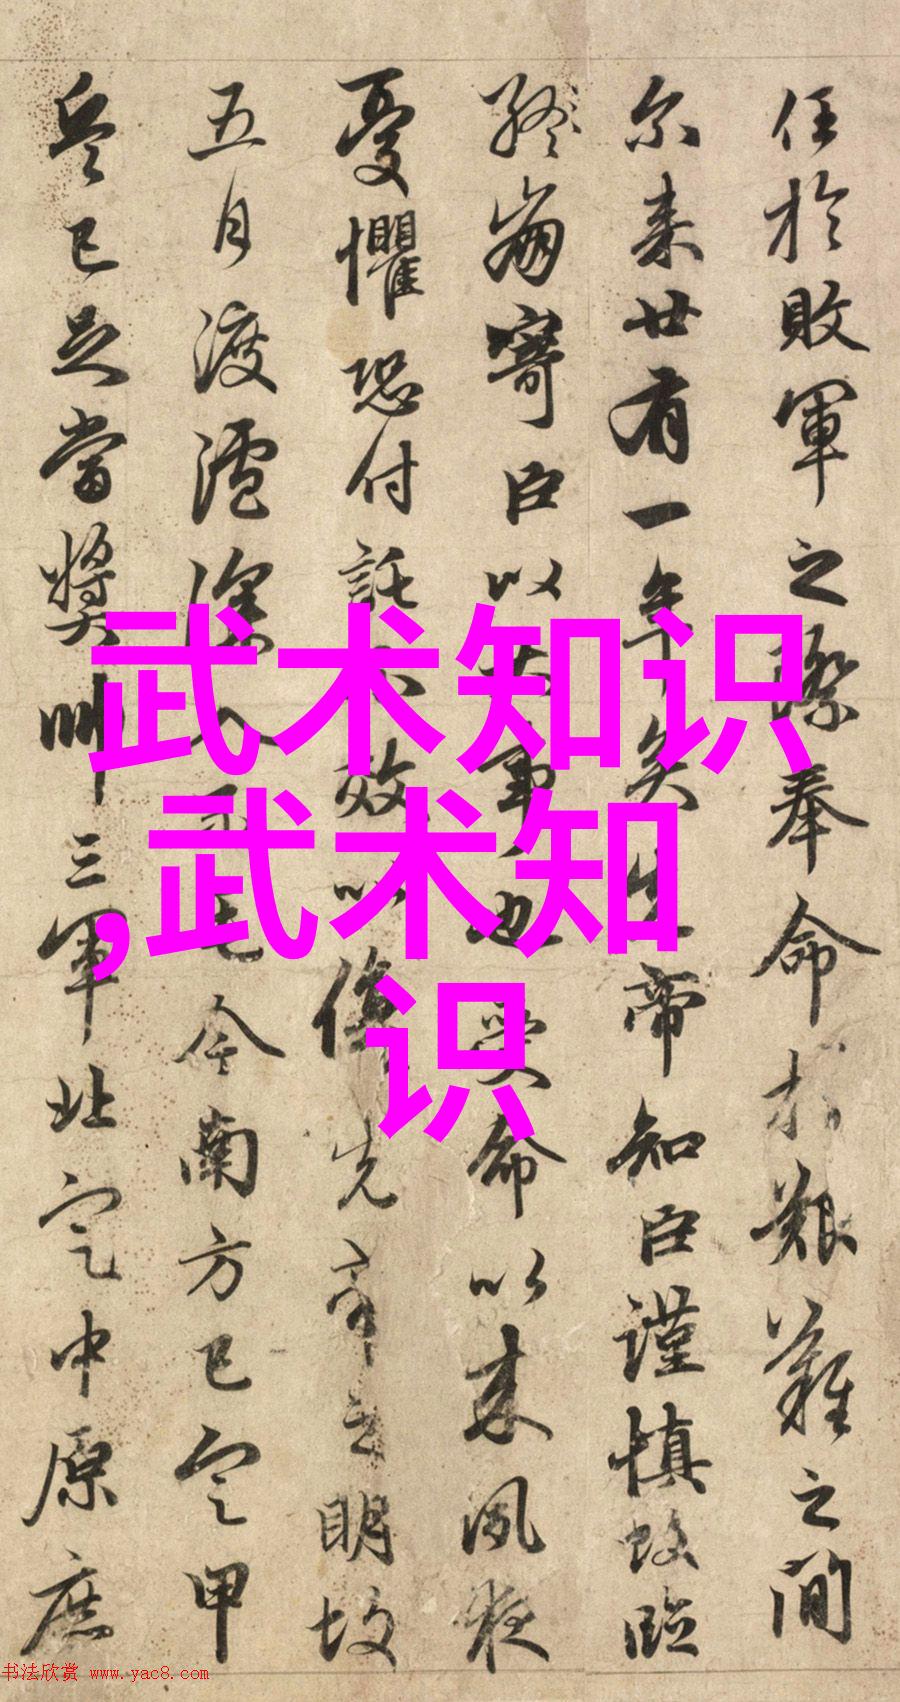 任於敗軍之際奉命於艱難之間
尔来廿有一年矣先帝知臣謹慎故臨
終崩寄臣以大事也受命以来夙夜
憂懼恐付託不效以傷先帝之明故
五月渡瀘深入不毛今南方已定甲
兵已足當獎帥三軍北定中原庶
武术知识
,武术知
识
书法欣赏 www.yac8.com